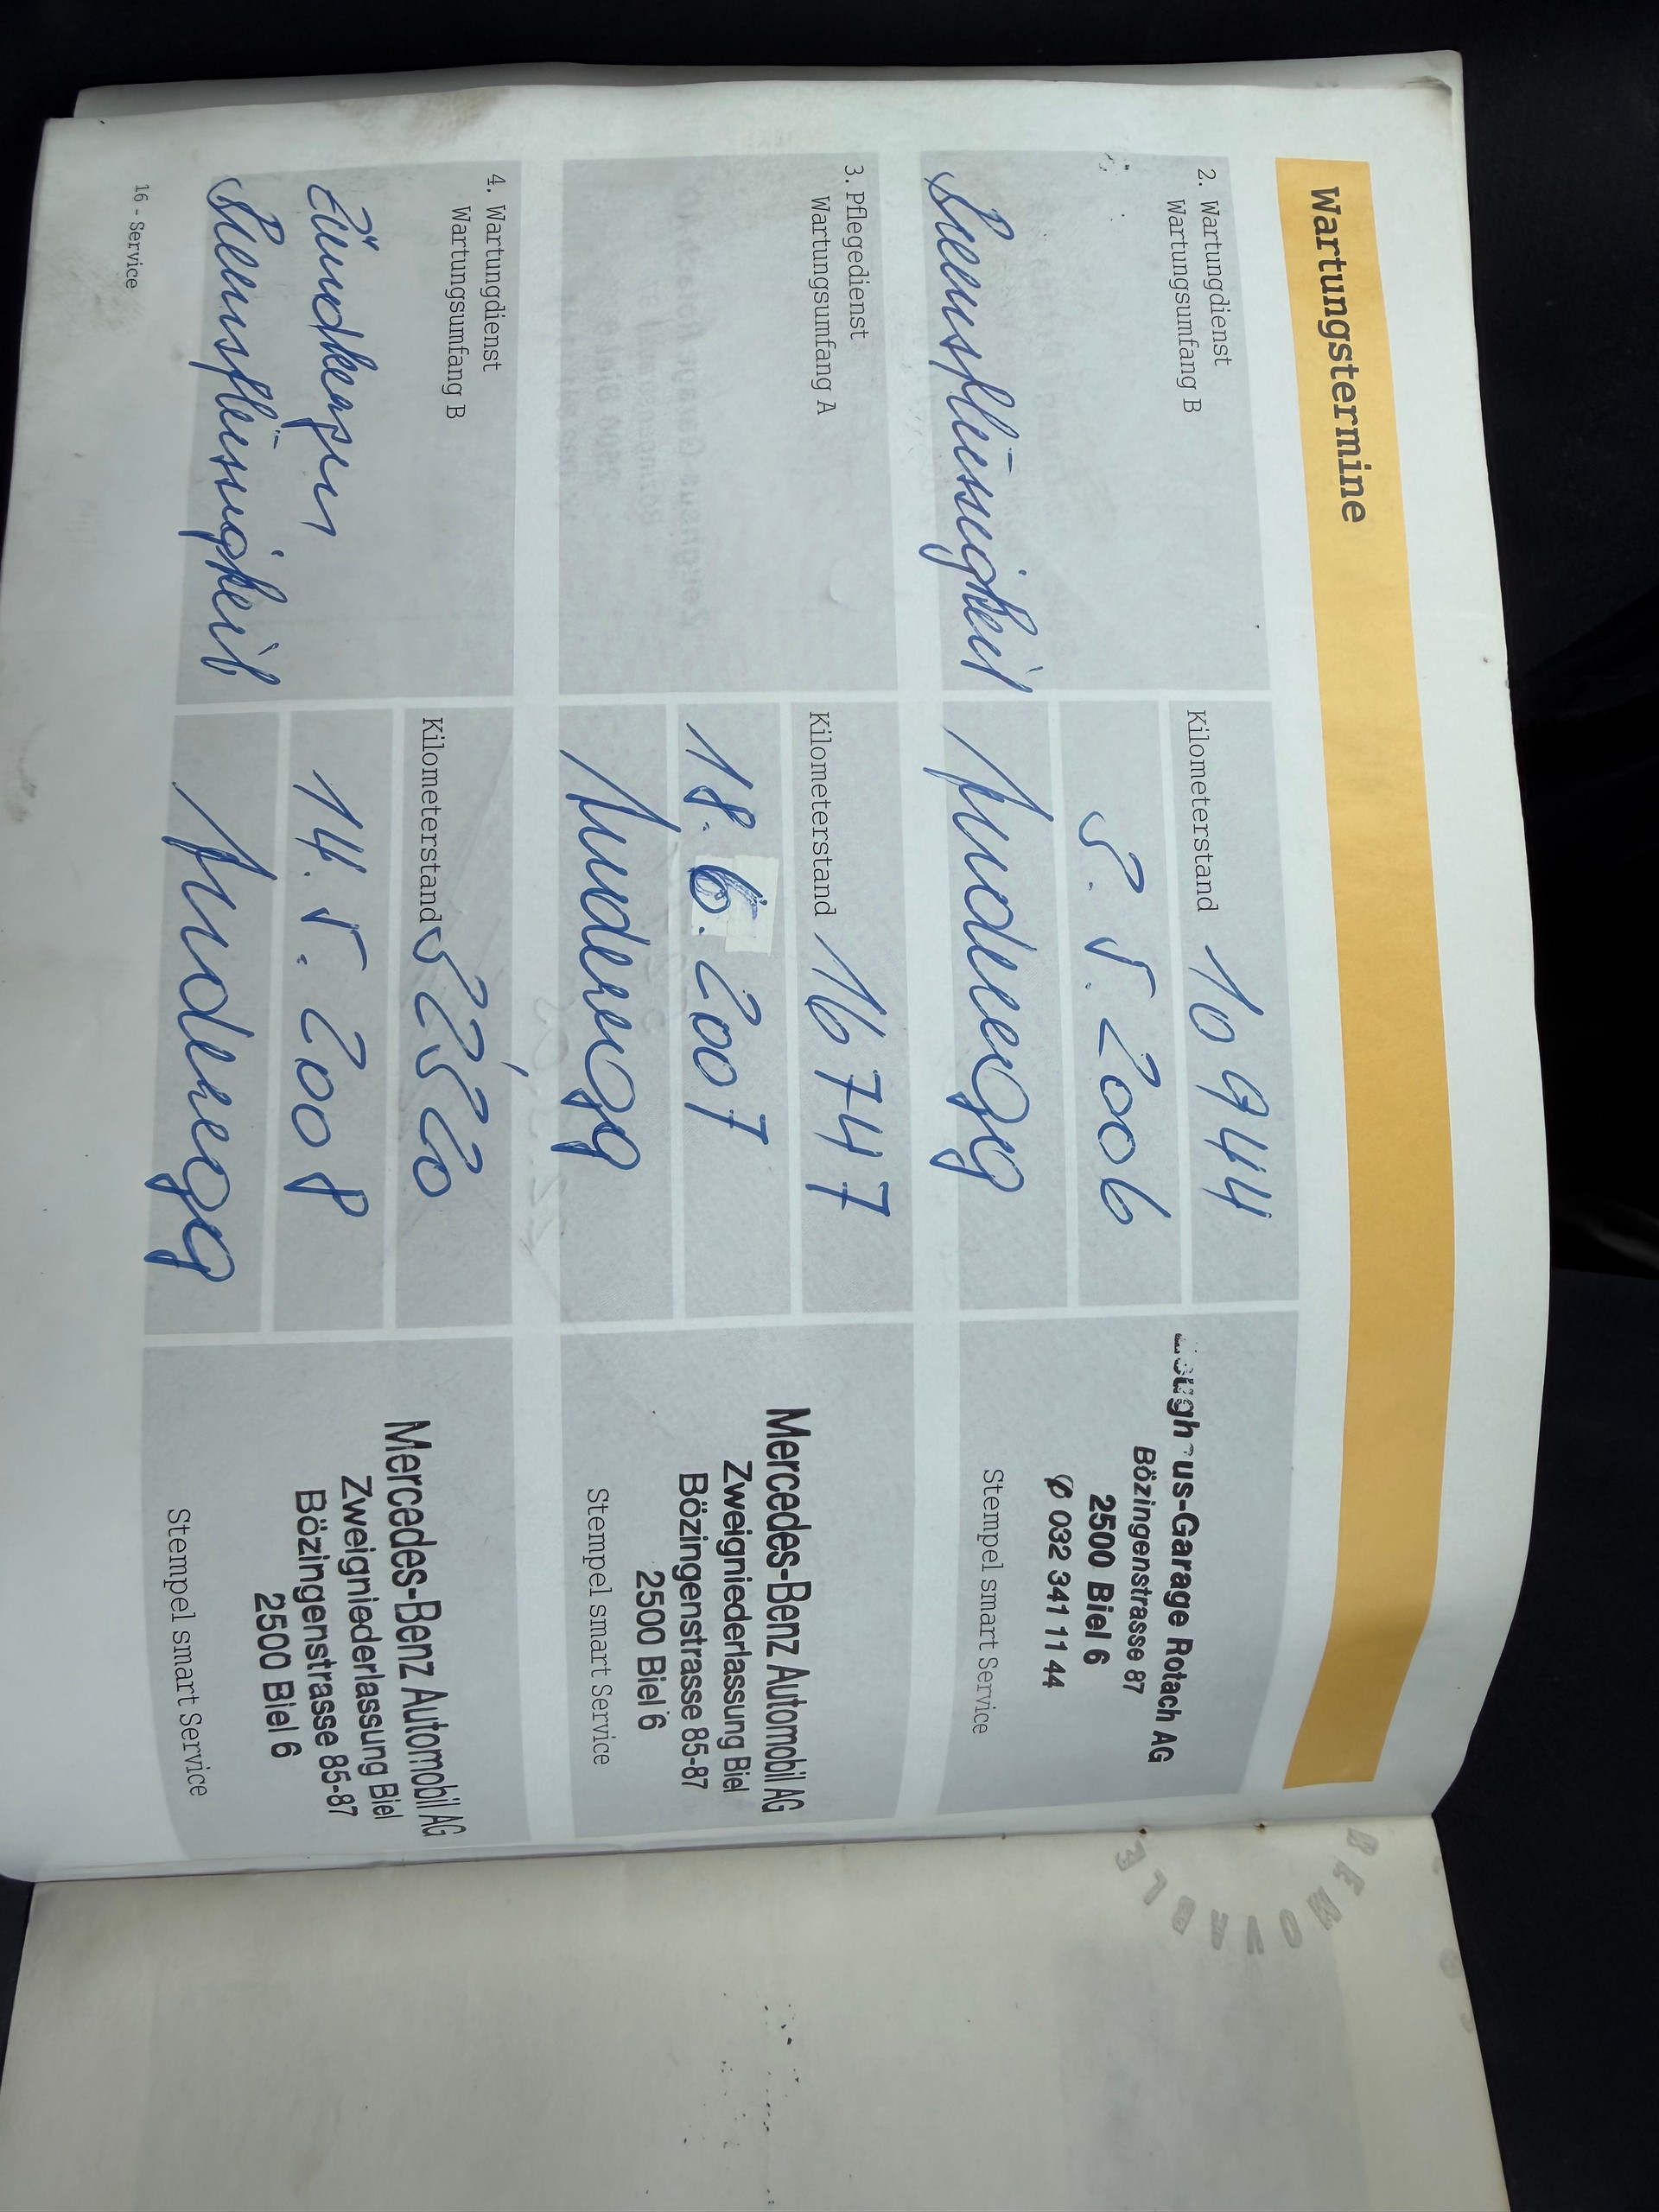 Wartungstermine
2. Wartungdienst
Wartungsumfang B
Bremsflüssigkeit
Kilometerstand 10 944
3. 5. 2006
Anderegg
Zeughaus-Garage Rotach AG
Bözingenstrasse 87
2500 Biel 6
✆ 032 341 11 44
Stempel smart Service
3. Pflegedienst
Wartungsumfang A
Kilometerstand 16 747
18. 6. 2007
Anderegg
Mercedes-Benz Automobil AG
Zweigniederlassung Biel
Bözingenstrasse 85-87
2500 Biel 6
Stempel smart Service
4. Wartungdienst
Wartungsumfang B
Zündkerzen
Bremsflüssigkeit
Kilometerstand
14. 5. 2008
Anderegg
Mercedes-Benz Automobil AG
Zweigniederlassung Biel
Bözingenstrasse 85-87
2500 Biel 6
Stempel smart Service
16 - Service